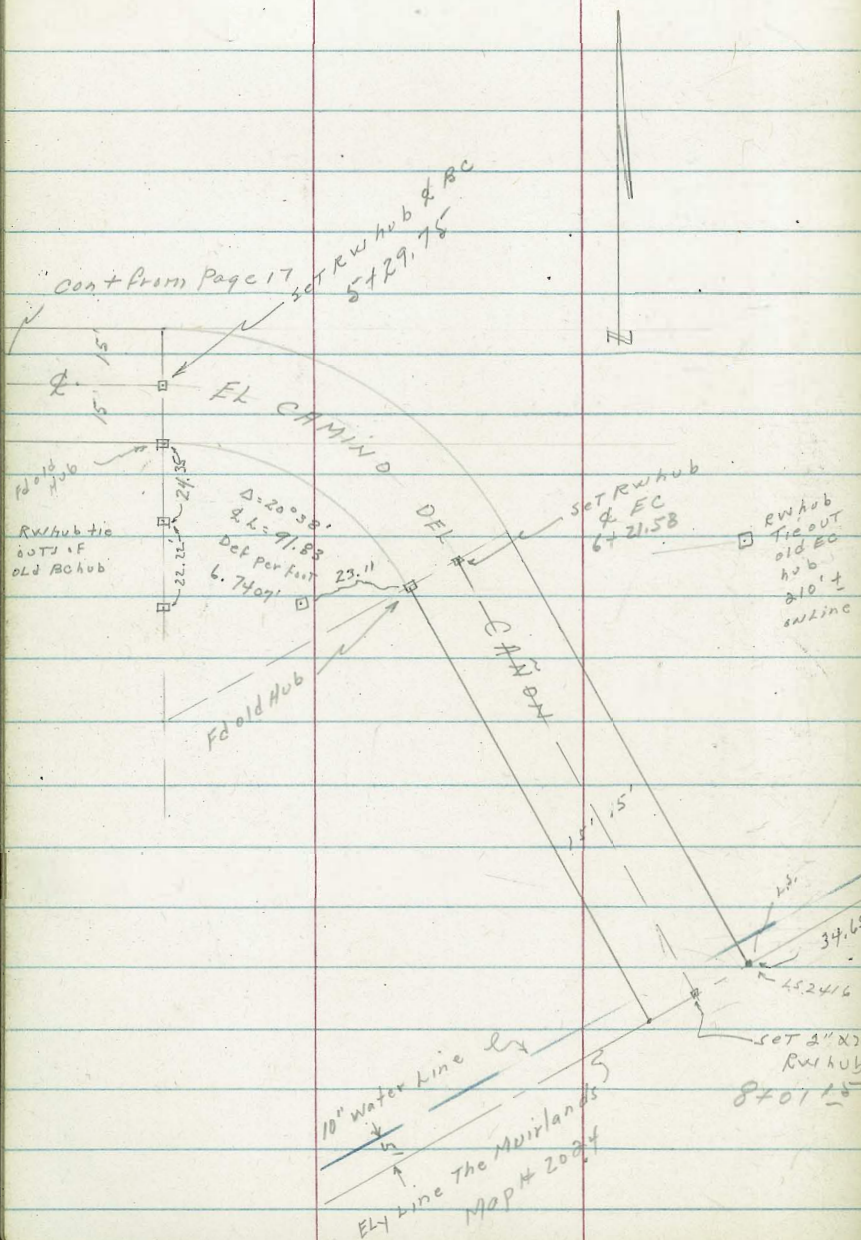 Cont from Page 17
SET RW hub ℄ BC
5+29.75
15'
℄
15'
EL CAMINO DEL CAÑON
Fd old
Hub
24.35
RW hub tie
OUTS OF
OLD BC hub
22.22'
Δ=20°38'
℄ L=91.83
Def Per Foot
6.7407'
23.11
SET RW hub
℄ EC
6+21.58
RW hub
Tie OUT
old EC
hub
210' ±
on Line
Fd old Hub
15' 15'
L.S.
34.6
LS.2416
SET 2"x
RW hub
8+01
10" Water Line
5'
ELY Line The Muirlands
Map # 2024
N